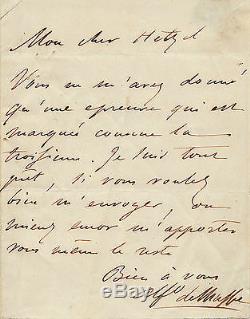 Mon cher Hetzel
Vous ne m'avez donné
qu'une epreuve qui est
marquée comme la
troisieme. Je suis tout
prêt, si vous voulez
bien m'envoyer, ou
mieux encor m'apporter
vous même le reste
Bien à vous
Alf. de Musset